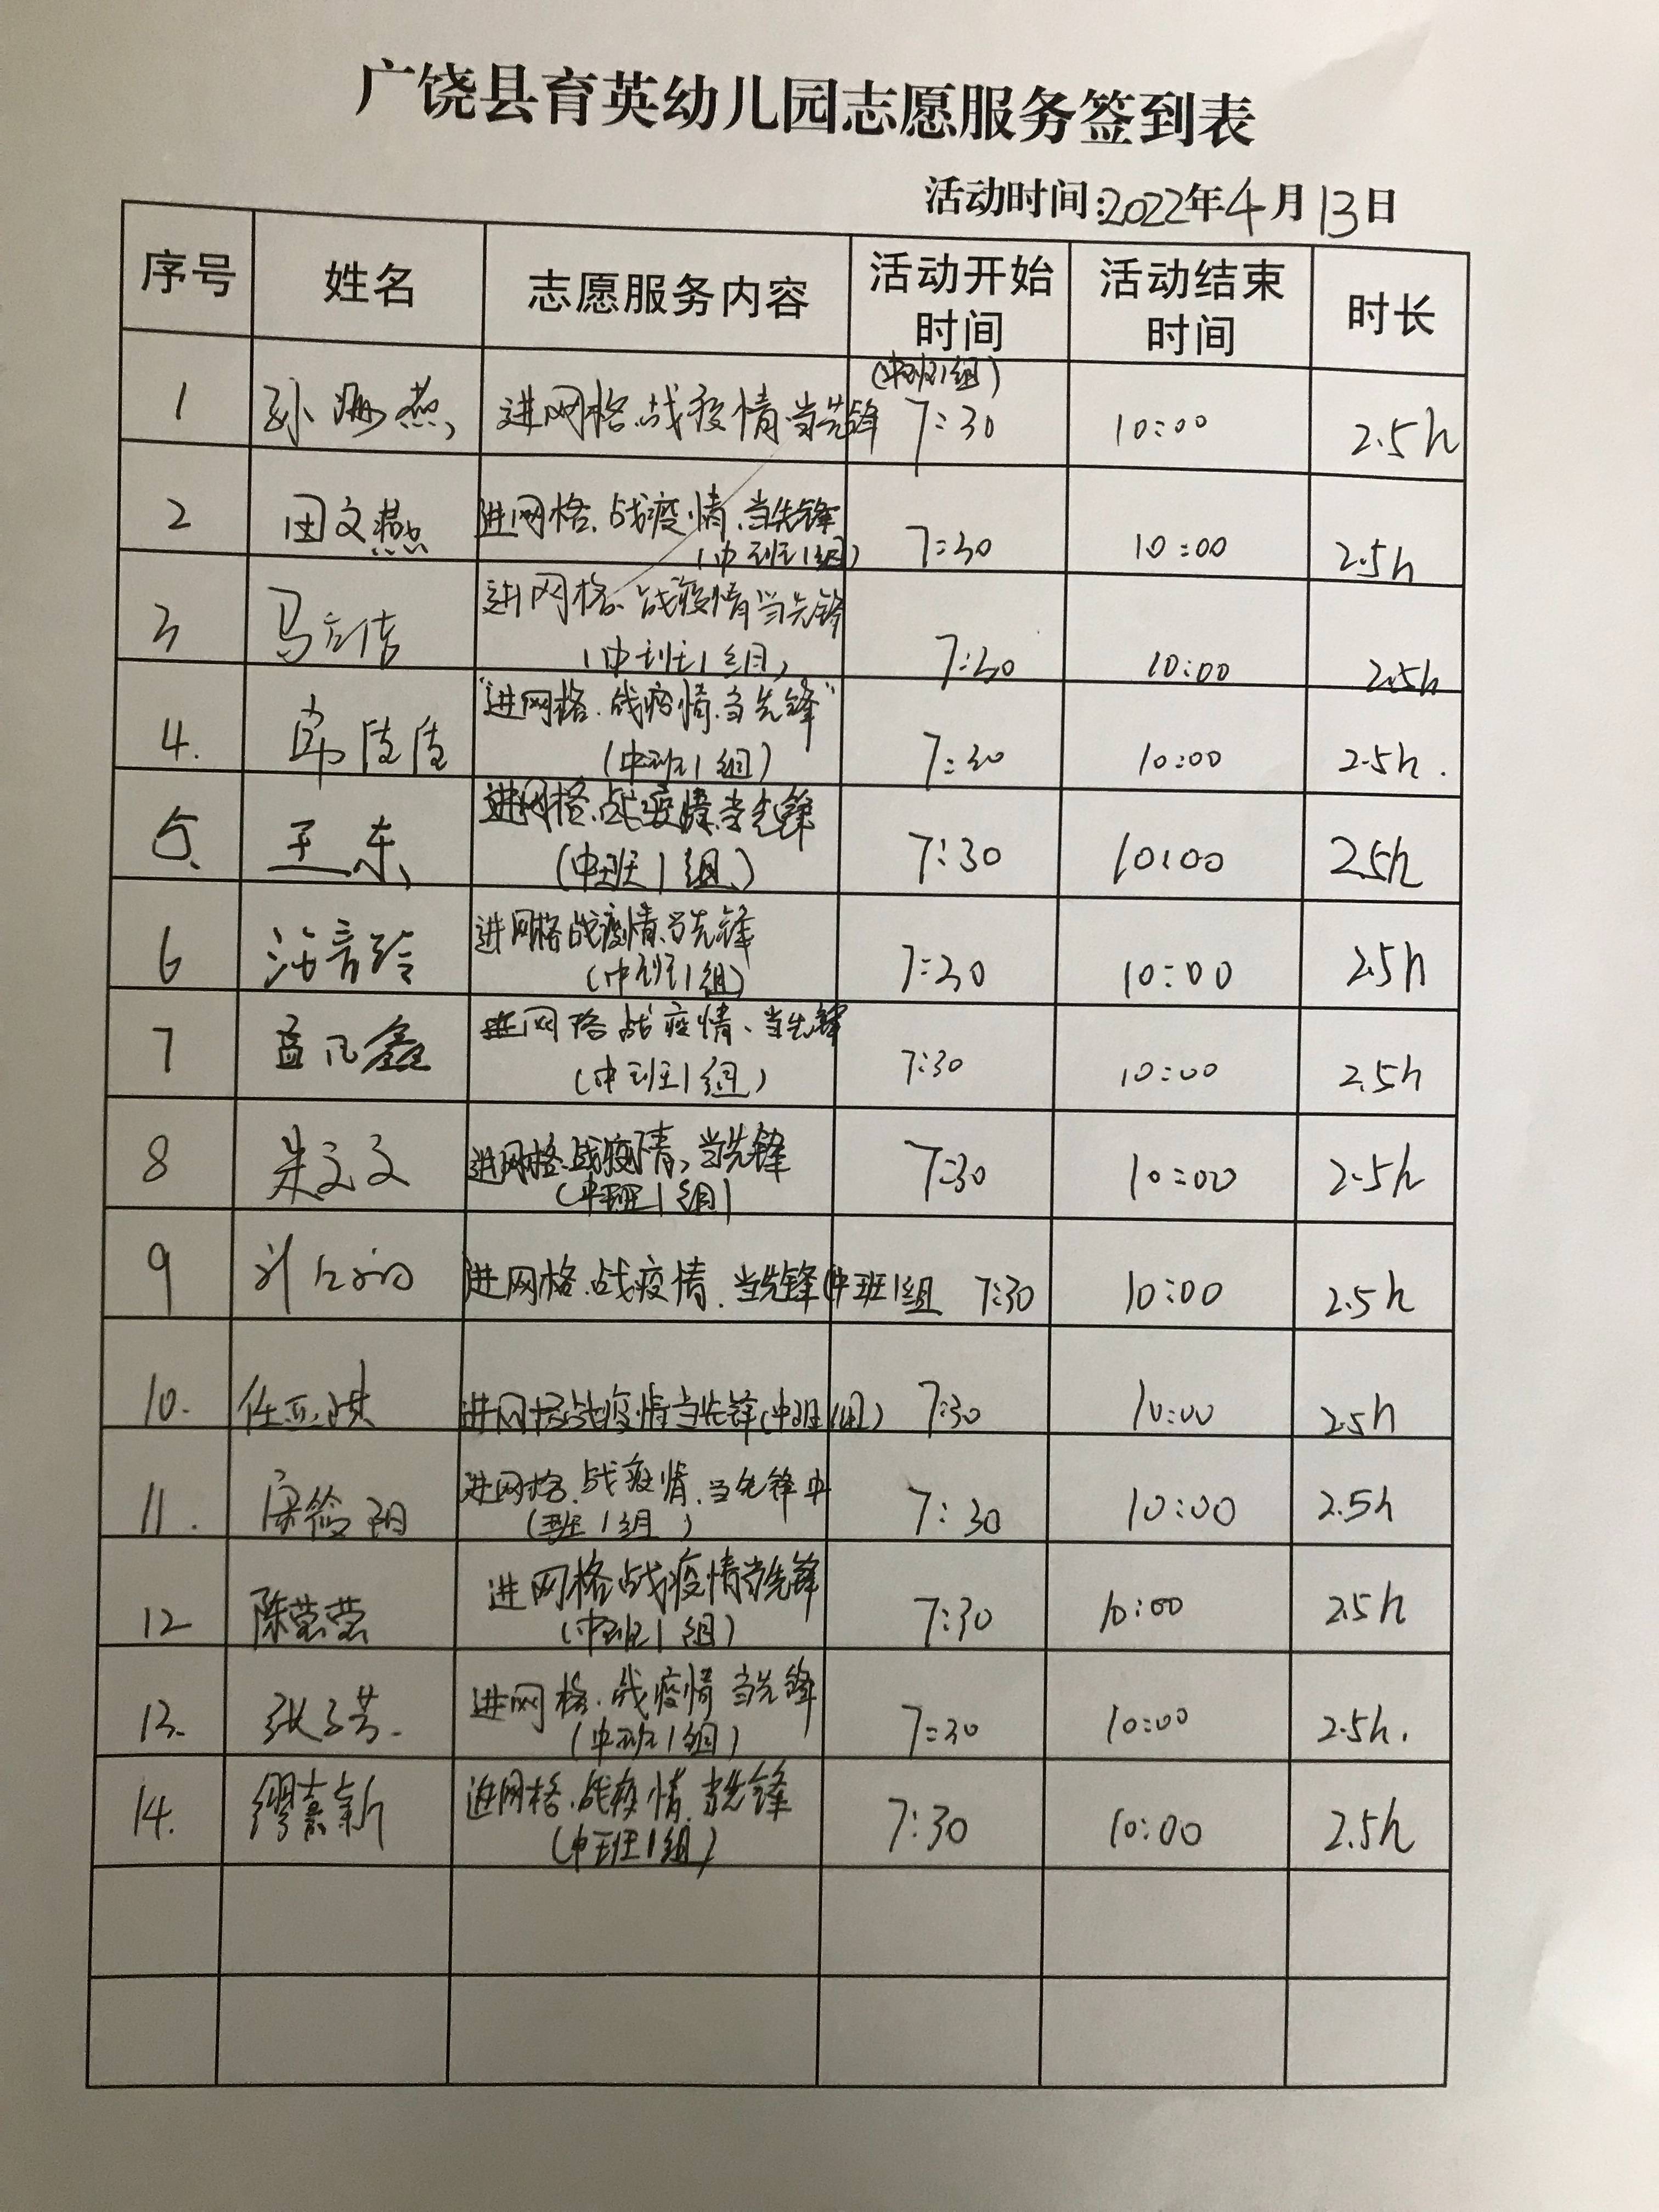 广饶县育英幼儿园志愿服务签到表
活动时间:2022年4月13日
序号 姓名 志愿服务内容 活动开始时间 活动结束时间 时长
(中班1组)
1 孙海燕 进网格.战疫情.当先锋 7:30 10:00 2.5h
2 田文燕 进网格.战疫情.当先锋 7:30 10:00 2.5h
(中班1组)
3 马 进网格.战疫情当先锋 7:30 10:00 2.5h
(中班1组)
4. "进网格.战疫情.当先锋" 7:30 10:00 2.5h.
(中班1组)
5、 王东 进网格.战疫情.当先锋 7:30 10:00 2.5h
(中班1组)
6 进网格战疫情.当先锋 7:30 10:00 2.5h
(中班1组)
7 孟凡鑫 进网格战疫情、当先锋 7:30 10:00 2.5h
(中班1组)
8 朱文文 进网格.战疫情,当先锋 7:30 10:00 2.5h
(中班1组)
9 进网格.战疫情.当先锋(中班1组 7:30 10:00 2.5h
10. 任亚琪 进网格战疫情当先锋(中班1组) 7:30 10:00 2.5h
11. 进网格.战疫情.当先锋中 7:30 10:00 2.5h
(班1组)
12 陈莹莹 进网格战疫情当先锋 7:30 10:00 2.5h
(中班1组)
13. 张子芳. 进网格.战疫情 当先锋 7:30 10:00 2.5h.
(中班1组)
14. 缪嘉新 进网格.战疫情.当先锋 7:30 10:00 2.5h
(中班1组)